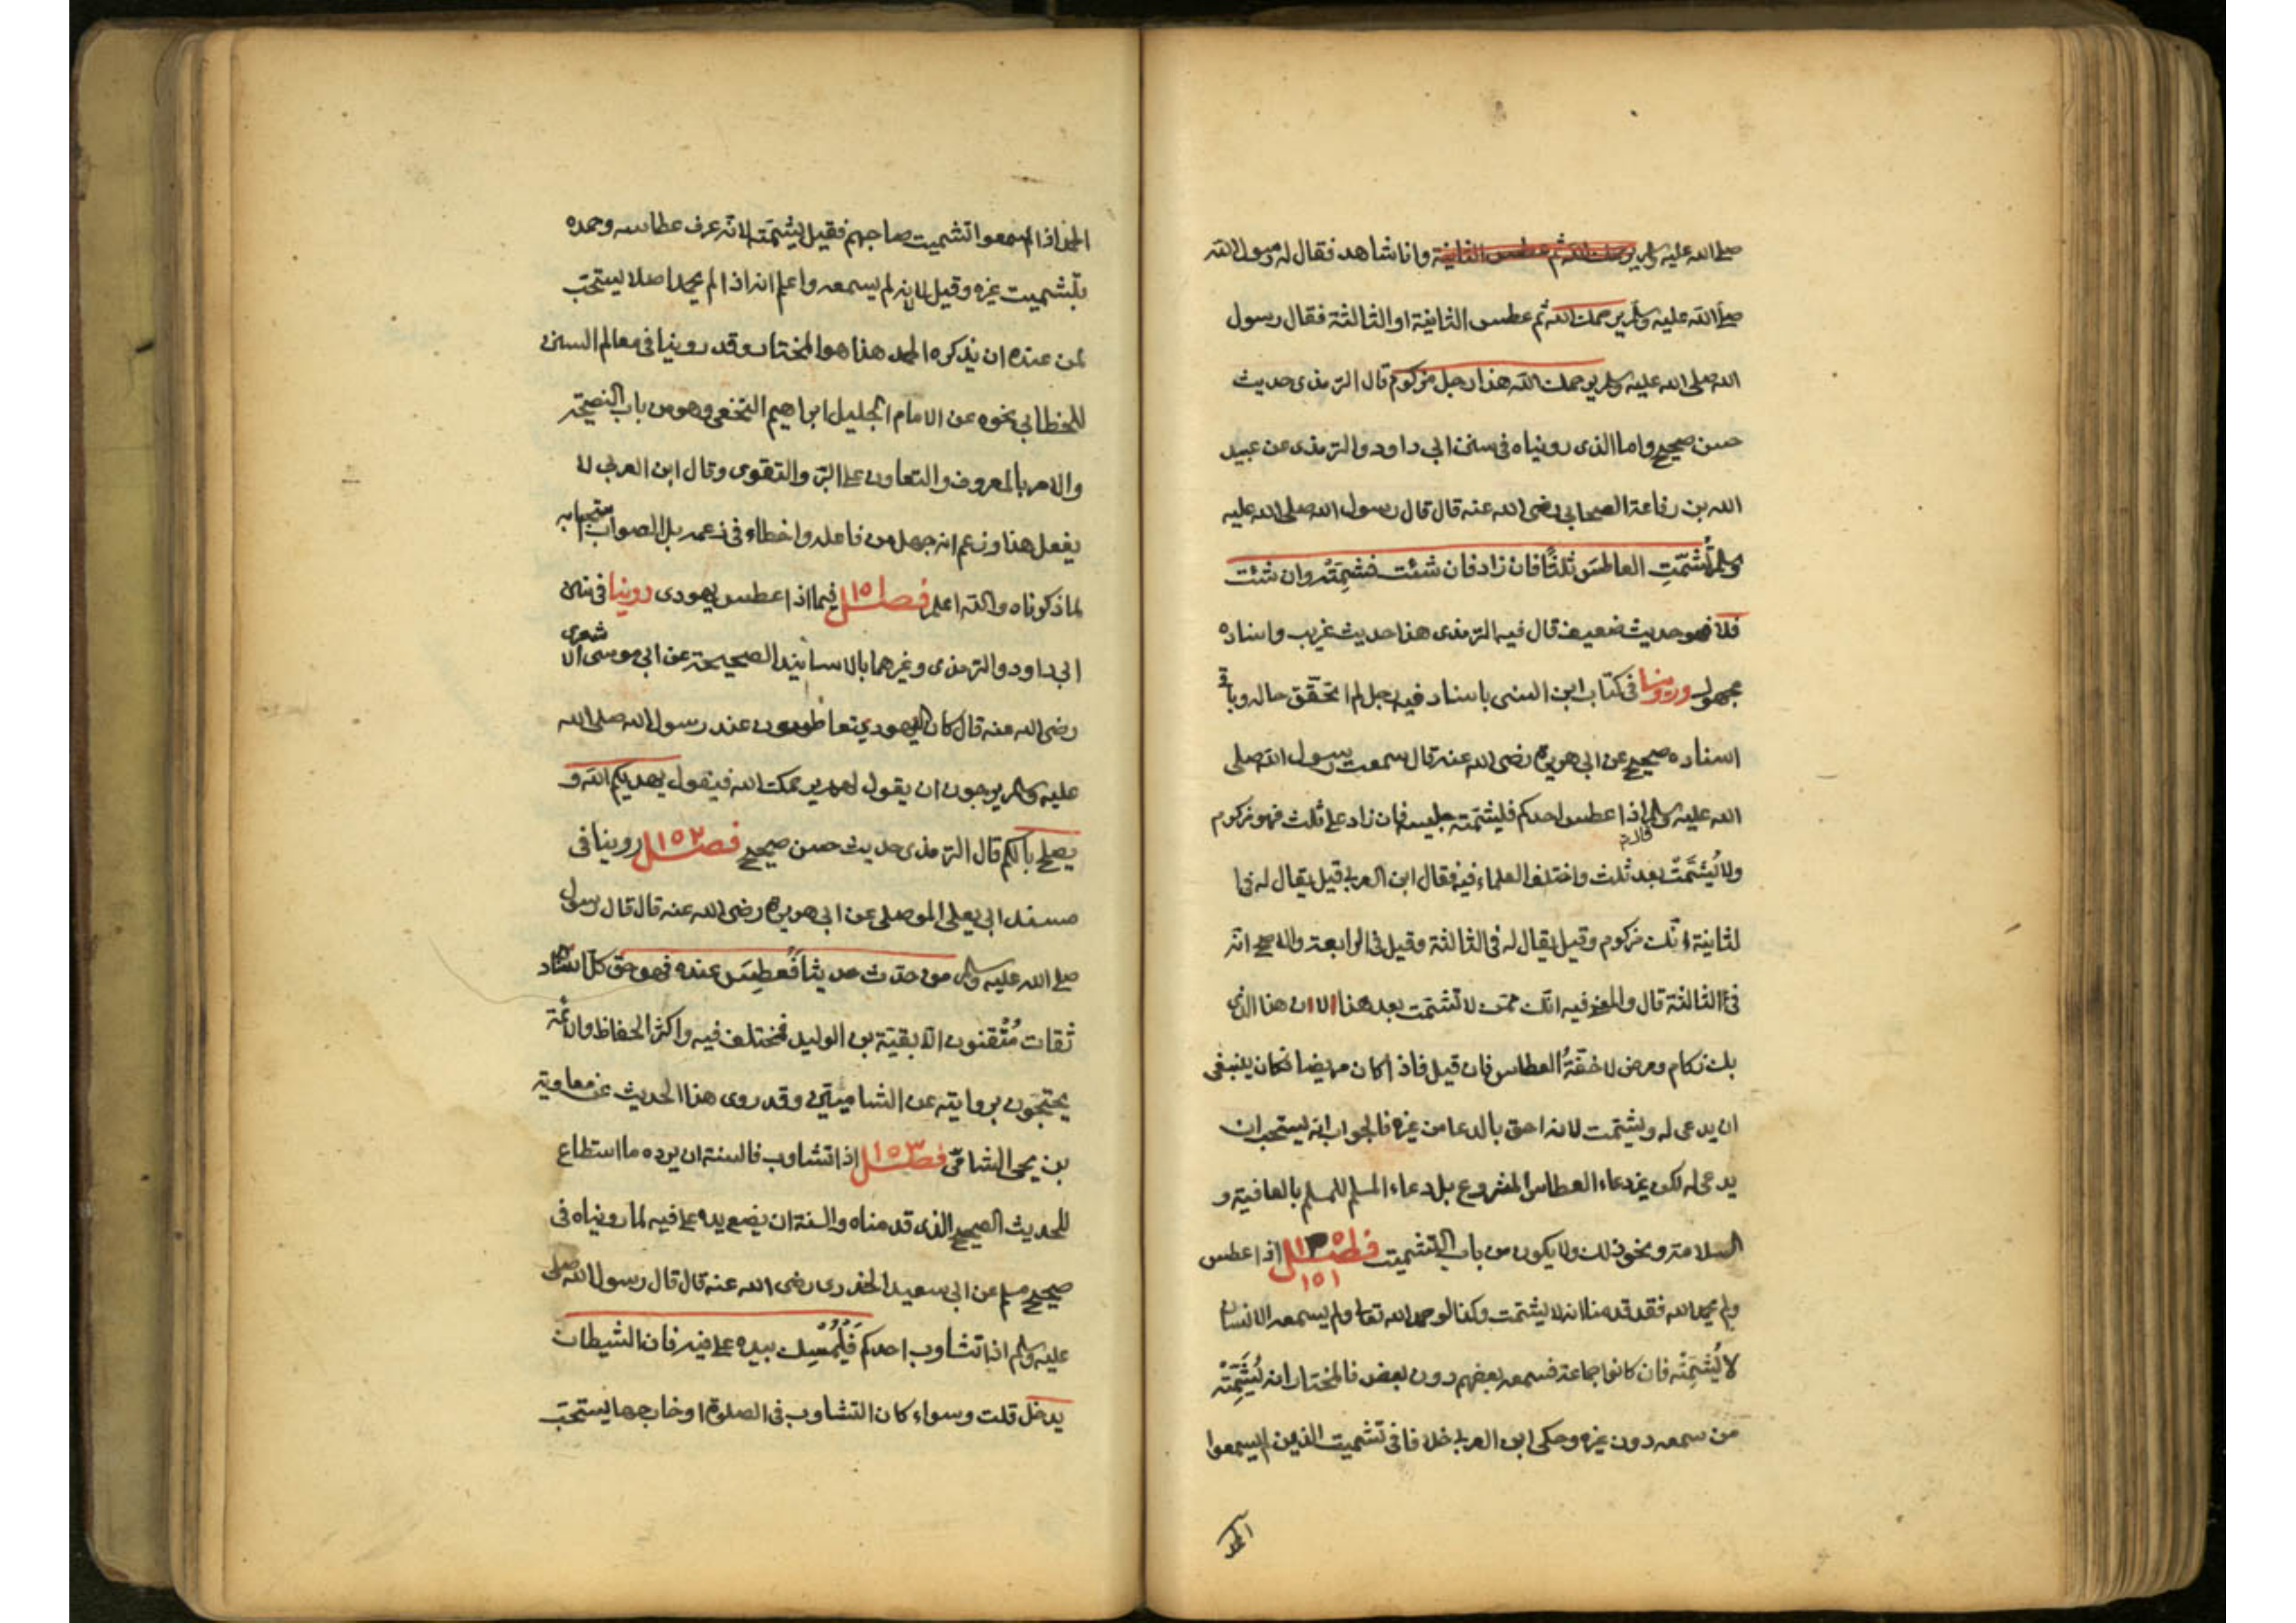 صلى الله عليه وسلم يرحمك الله ثم عطس الثانية وانا شاهد فقال له رسول الله
صلى الله عليه وسلم يرحمك الله ثم عطس الثانية او الثالثة فقال رسول
الله صلى الله عليه وسلم يرحمك الله هذا رجل مزكوم قال الترمذى حديث
حسن صحيح واما الذى رويناه فى سنن ابى داود والترمذى عن عبيد
الله بن رفاعة الصحابى رضى الله عنه قال قال رسول الله صلى الله عليه
وسلم تُشَمِّتِ العاطسَ ثلثًا فان زاد فان شئت فشمِّتْه وان شئت
فلا فهو حديث ضعيف قال فيه الترمذى هذا حديث غريب واسناده
مجهول وروينا فى كتاب ابن السنى باسناد فيه رجل لم اتحقّق حاله وباقى
اسناده صحيح عن ابى هريرة رضى الله عنه قال سمعت رسول الله صلى
الله عليه وسلم اذا عطس احدكم فليشمّته جليسه فان زاد على ثلث فهو مزكوم
ولا يُشَمَّت بعد ثلث واختلف العلماء فيه فقال ابن العربى قيل يقال له فى ا
لثانية انّك مزكوم وقيل يقال له فى الثالثة وقيل فى الرابعة والاصح انه
فى الثالثة قال والمعنى فيه انّك ممّن لا تشمّت بعد هذا لان هذا الذى
بك زكام ومرض لا خفّةُ العطاس فان قيل فاذا كان مريضا فكان ينبغى
ان يدعى له ويشمّت لانه احق بالدعا من غيره فالجواب انه يستحب ان
يدعى له لكن غير دعاء العطاس المشروع بل دعاء المسلم للمسلم بالعافية و
السلامة ونحو ذلك ولا يكون من باب التشميت فصل اذا عطس
١٥١
ولم يحمد الله فقد قدمنا انه لا يشمّت وكذا لو حمد الله تعالى ولم يسمعه الانسان
لا يُشَمِّتْه فان كانوا جماعة فسمعه بعضهم دون بعض فالمختار انه يُشَمِّتْه
من سمعه دون غيره وحكى ابن العربى خلافا فى تشميت الذين لم يسمعوا
الحمد
الحمد اذا سمعوا تشميت صاحبهم فقيل يشمّته لانه عرف عطاسه وحمده
بتشميت غيره وقيل لا لانه لم يسمعه واعلم انه اذا لم يحمد اصلا يستحبّ
لمن عنده ان يذكره الحمد هذا هو المختار وقد روينا فى معالم السنن
للخطابى نحوه عن الامام الجليل ابراهيم النخعى وهو من باب النصيحة
والامر بالمعروف والتعاون على البرّ والتقوى وقال ابن العربى لا
يفعل هذا وزعم انه جهل من فاعله واخطاء فى زعمه بل الصواب استحبابه
لما ذكرناه والله اعلم فصل ١٥١ فيما اذا عطس يهودى روينا فى سنن
ابى داود والترمذى وغيرهما بالاسانيد الصحيحة عن ابى موسى الاشعرى
رضى الله عنه قال كان اليهود يتعاطسون عند رسول الله صلى الله
عليه وسلم يرجون ان يقول لهم يرحمكم الله فيقول يهديكم الله و
يصلح بالكم قال الترمذى حديث حسن صحيح فصل ١٥٢ روينا فى
مسند ابى يعلى الموصلى عن ابى هريرة رضى الله عنه قال قال رسول
صلى الله عليه وسلم من حدّث حديثا فعطس عنده فهو حق كل اسناده
ثقات مُتْقنون الا بقيّة بن الوليد فمختلف فيه واكثر الحفاظ والائمّة
يحتجّون بروايته عن الشاميّين وقد روى هذا الحديث عن معاوية
بن يحيى الشامىّ فصل ١٥٣ اذا تثاوب فالسنة ان يرده ما استطاع
للحديث الصحيح الذى قدمناه والسنة ان يضع يده على فيه لما رويناه فى
صحيح مسلم عن ابى سعيد الخدرى رضى الله عنه قال قال رسول الله صلى
عليه وسلم اذا تثاوب احدكم فَلْيُمْسِك بيده على فيه فان الشيطان
يدخل قلت وسواء كان التثاوب فى الصلوة او خارجها يستحبّ